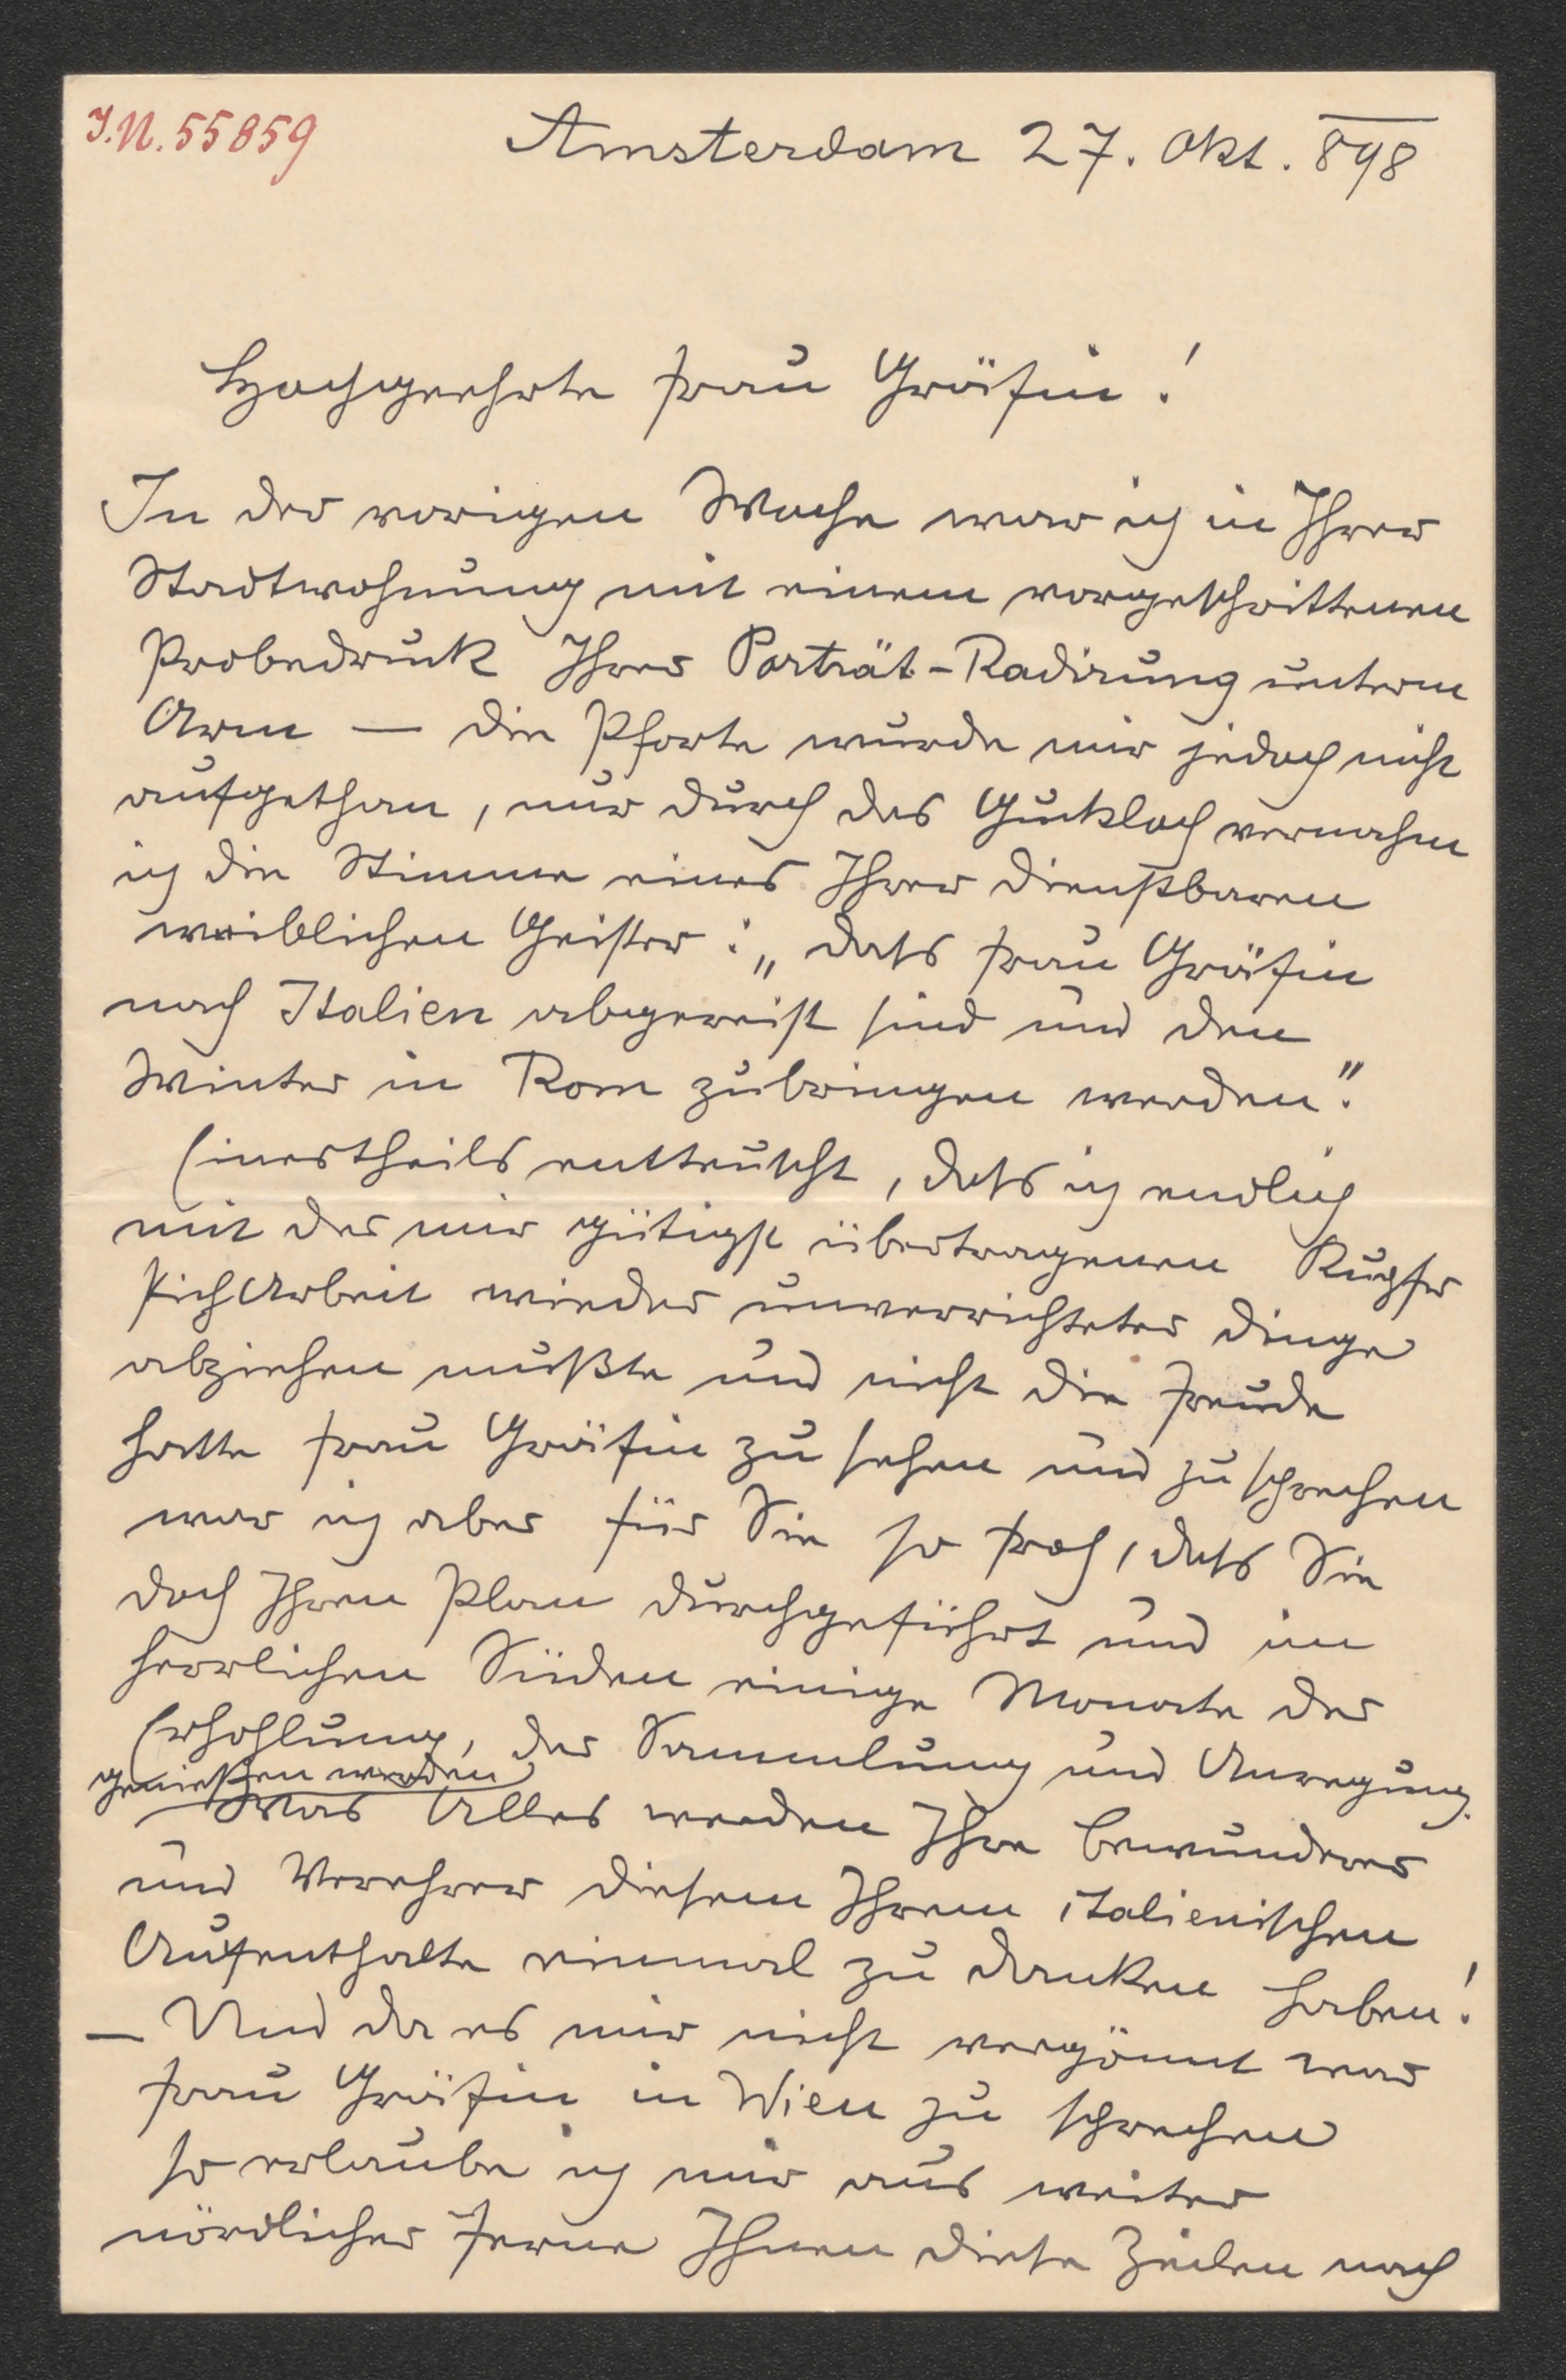 I.N. 55859
Amsterdam 27. Okt. 898
Hochgeehrte Frau Gräfin!
In der vorigen Woche war ich in Ihrer
Stadtwohnung mit einem vorgeschrittenen
Probedruck Ihrer Porträt-Radirung unterm
Arm — die Pforte wurde mir jedoch nicht
aufgethan, nur durch das Guckloch vernahm
ich die Stimme eines Ihrer dienstbaren
weiblichen Geister: „dass Frau Gräfin
nach Italien abgereist sind und den
Winter in Rom zubringen werden".
Einestheils enttäuscht, dass ich endlich
mit der mir gütigst übertragenen Kupfer
stich Arbeit wieder unverrichteter Dinge
abziehen mußte und nicht die Freude
hatte Frau Gräfin zu sehen und zu sprechen
war ich aber für Sie so froh, dass Sie
doch Ihren Plan durchgeführt und im
herrlichen Süden einige Monate der
Erhohlung, der Sammlung und Anregung
genießen werden.
— Was Alles werden Ihre Bewunderer
und Verehrer diesem Ihrem italienischen
Aufenthalte einmal zu danken haben!
— Und da es mir nicht vergönnt war
Frau Gräfin in Wien zu sprechen
so erlaube ich mir aus weiter
nördlicher Ferne Ihnen diese Zeilen nach